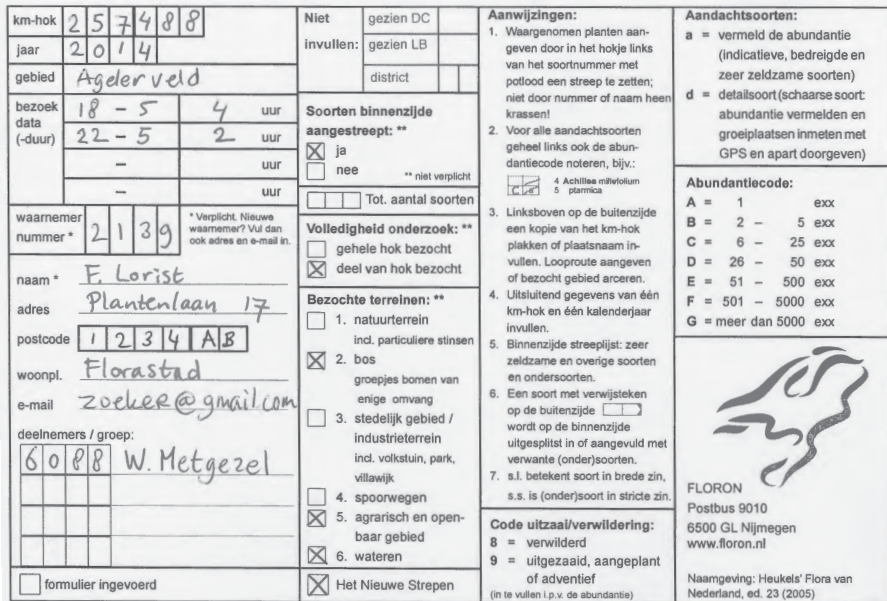 km-hok 2 5 7 4 8 8
jaar 2 0 1 4
gebied Agelerveld
bezoek data (-duur)
18 - 5 4 uur
22 - 5 2 uur
- uur
- uur
waarnemer nummer * 2 1 3 9
* Verplicht. Nieuwe
waarnemer? Vul dan
ook adres en e-mail in.
naam * F. Lorist
adres Plantenlaan 17
postcode 1 2 3 4 A B
woonpl. Florastad
e-mail zoeker@gmail.com
deelnemers / groep:
6 0 8 8 W. Metgezel
formulier ingevoerd
Niet invullen:
gezien DC
gezien LB
district
Soorten binnenzijde
aangestreept: **
ja
nee ** niet verplicht
Tot. aantal soorten
Volledigheid onderzoek: **
gehele hok bezocht
deel van hok bezocht
Bezochte terreinen: **
1. natuurterrein
incl. particuliere stinsen
2. bos
groepjes bomen van
enige omvang
3. stedelijk gebied /
industrieterrein
incl. volkstuin, park,
villawijk
4. spoorwegen
5. agrarisch en open-
baar gebied
6. wateren
Het Nieuwe Strepen
Aanwijzingen:
1. Waargenomen planten aan-
geven door in het hokje links
van het soortnummer met
potlood een streep te zetten;
niet door nummer of naam heen
krassen!
2. Voor alle aandachtsoorten
geheel links ook de abun-
dantiecode noteren, bijv.:
C 4 Achillea millefolium
5 ptarmica
3. Linksboven op de buitenzijde
een kopie van het km-hok
plakken of plaatsnaam in-
vullen. Looproute aangeven
of bezocht gebied arceren.
4. Uitsluitend gegevens van één
km-hok en één kalenderjaar
invullen.
5. Binnenzijde streeplijst: zeer
zeldzame en overige soorten
en ondersoorten.
6. Een soort met verwijsteken
op de buitenzijde
wordt op de binnenzijde
uitgesplitst in of aangevuld met
verwante (onder)soorten.
7. s.l. betekent soort in brede zin,
s.s. is (onder)soort in stricte zin.
Code uitzaai/verwildering:
8 = verwilderd
9 = uitgezaaid, aangeplant
of adventief
(in te vullen i.p.v. de abundantie)
Aandachtsoorten:
a = vermeld de abundantie
(indicatieve, bedreigde en
zeer zeldzame soorten)
d = detailsoort (schaarse soort:
abundantie vermelden en
groeiplaatsen inmeten met
GPS en apart doorgeven)
Abundantiecode:
A = 1 exx
B = 2 – 5 exx
C = 6 – 25 exx
D = 26 – 50 exx
E = 51 – 500 exx
F = 501 – 5000 exx
G = meer dan 5000 exx
FLORON
Postbus 9010
6500 GL Nijmegen
www.floron.nl
Naamgeving: Heukels' Flora van
Nederland, ed. 23 (2005)